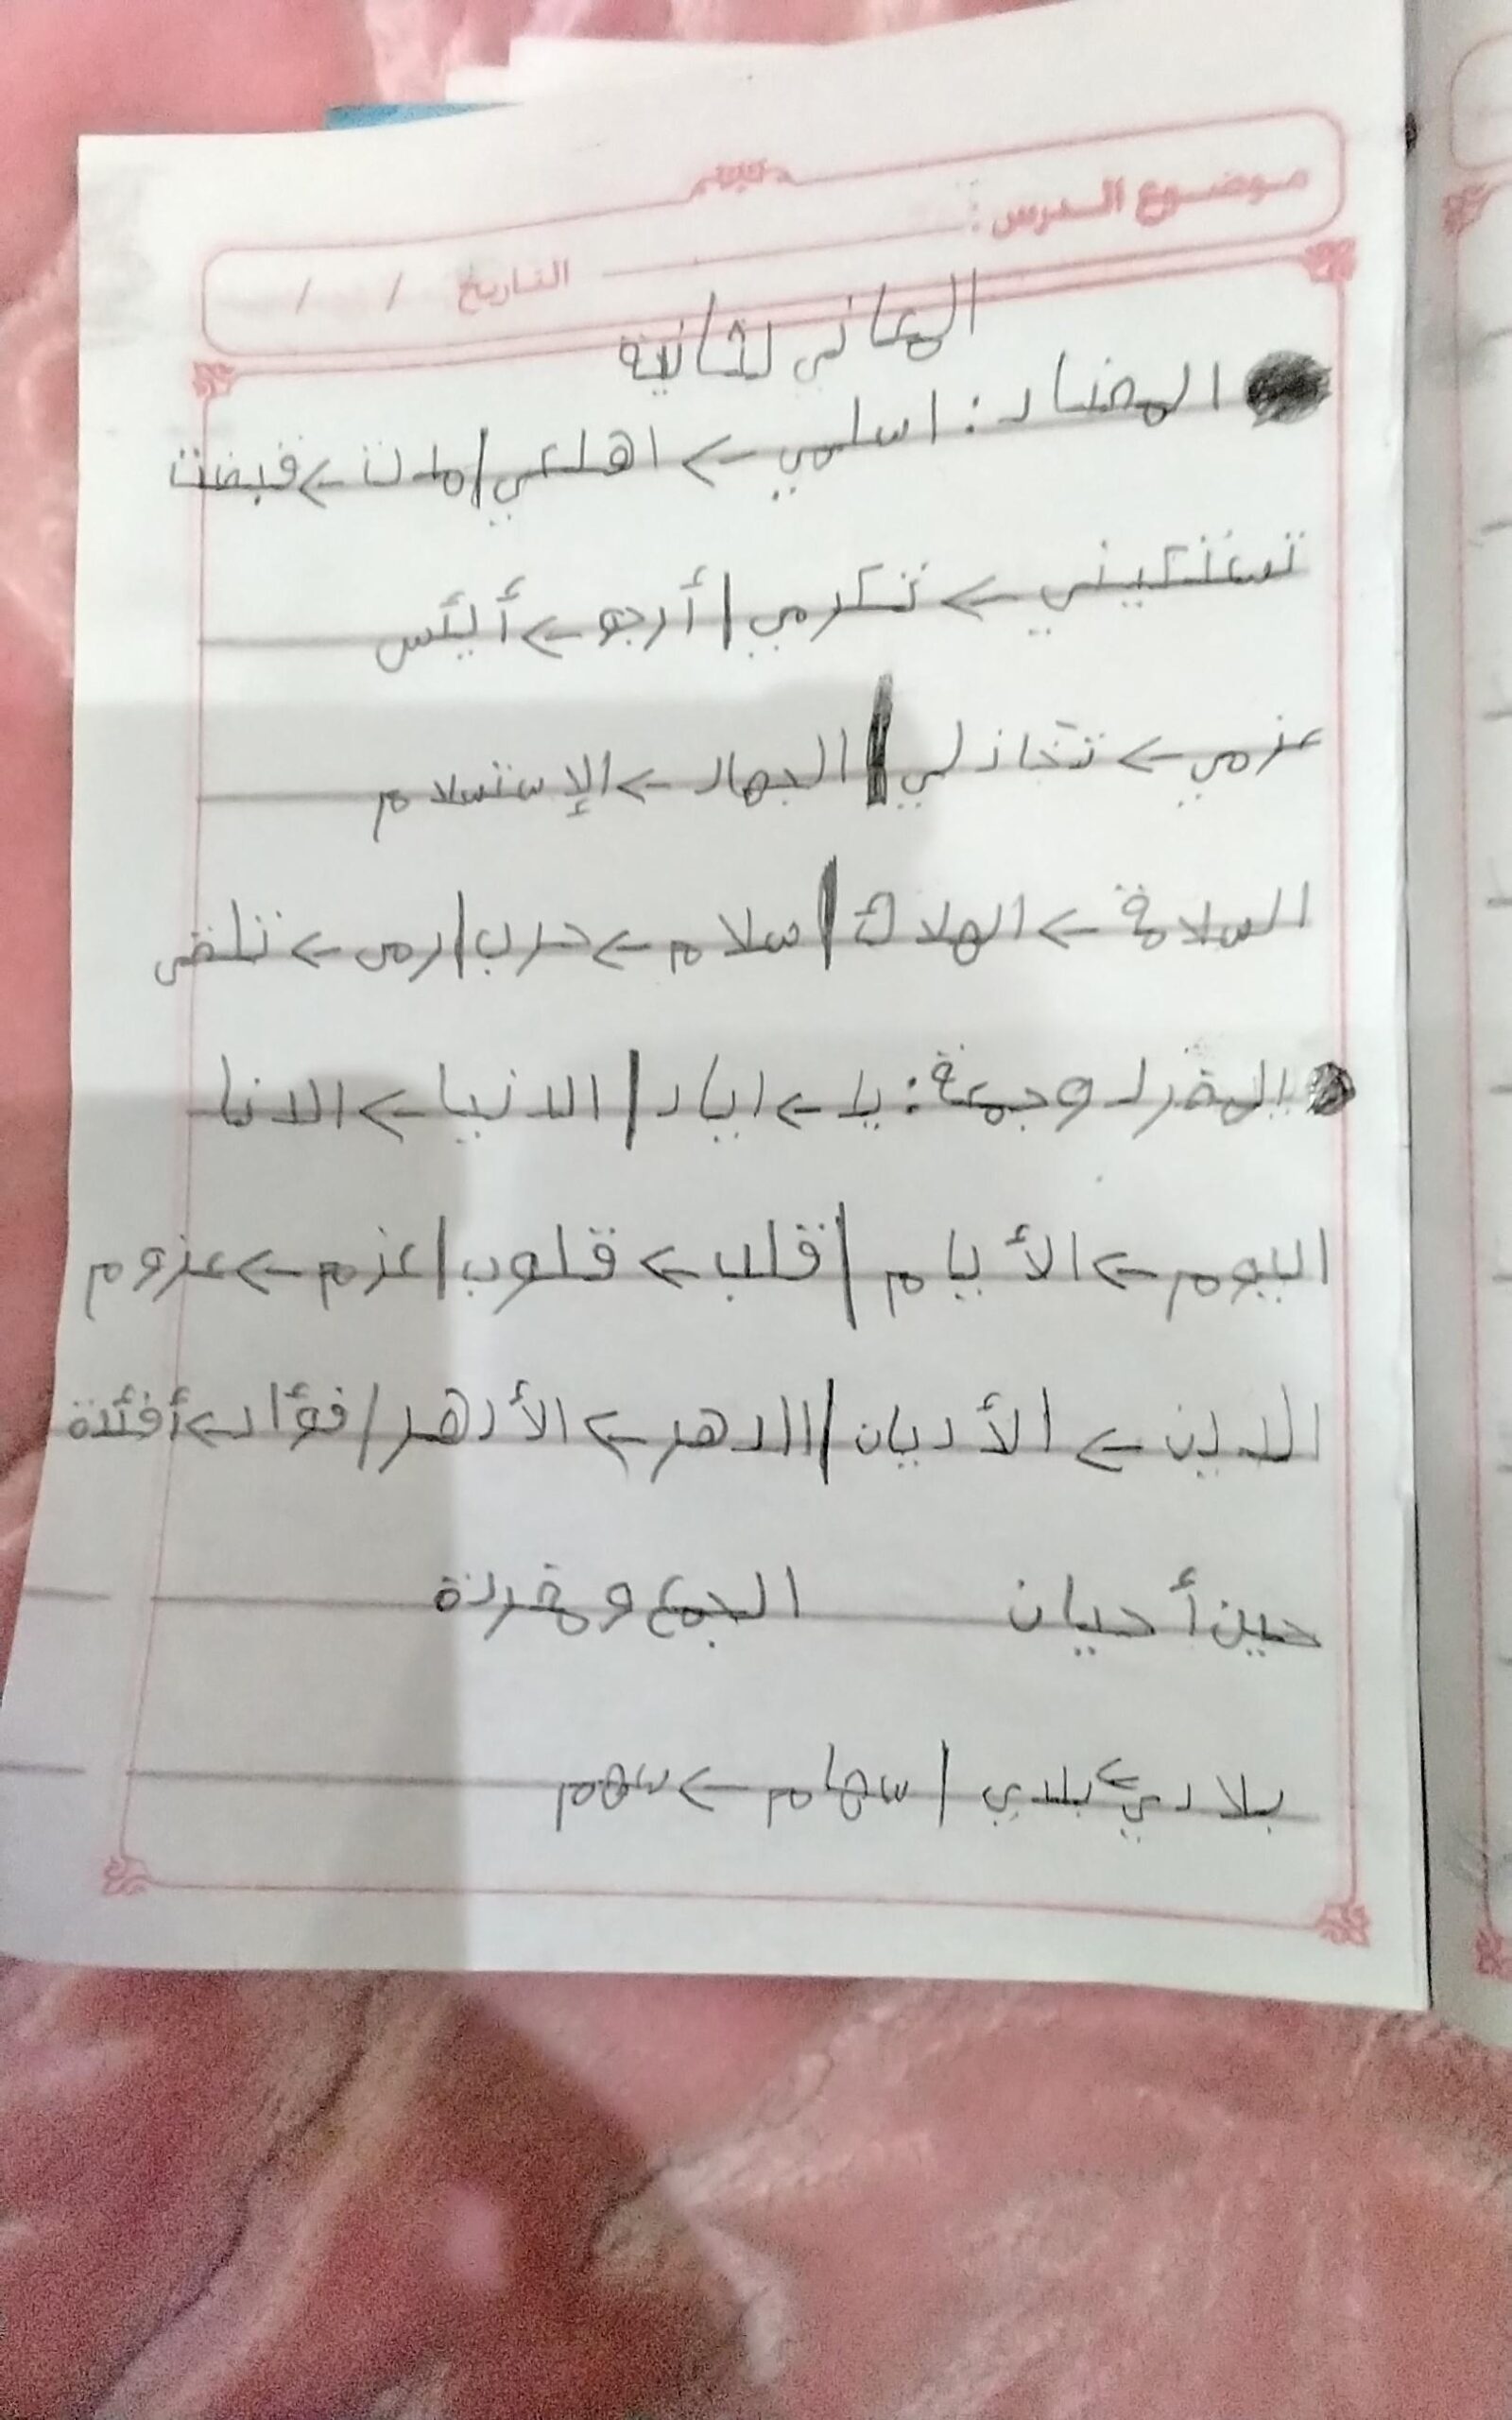 موضوع الدرس :
التاريخ / /
المعاني الثانية
المضاد : اسلمي -> اهلكي | مدت -> قبضت
تستكيني -> تكرمي | أرجو -> أيئس
عزمي -> تخاذلي | الجهاد -> الإستسلام
السلامة -> الهلاك | سلام -> حرب | رمى -> تلقى
المفرد وجمعة : يد -> اياد | الدنيا -> الدنا
اليوم -> الأيام | قلب -> قلوب | عزم -> عزوم
الدين -> الأديان | الدهر -> الأدهر | فؤاد -> أفئدة
حين أحيان الجمع ومفردة
بلادي -> بلدي | سهام -> سهم